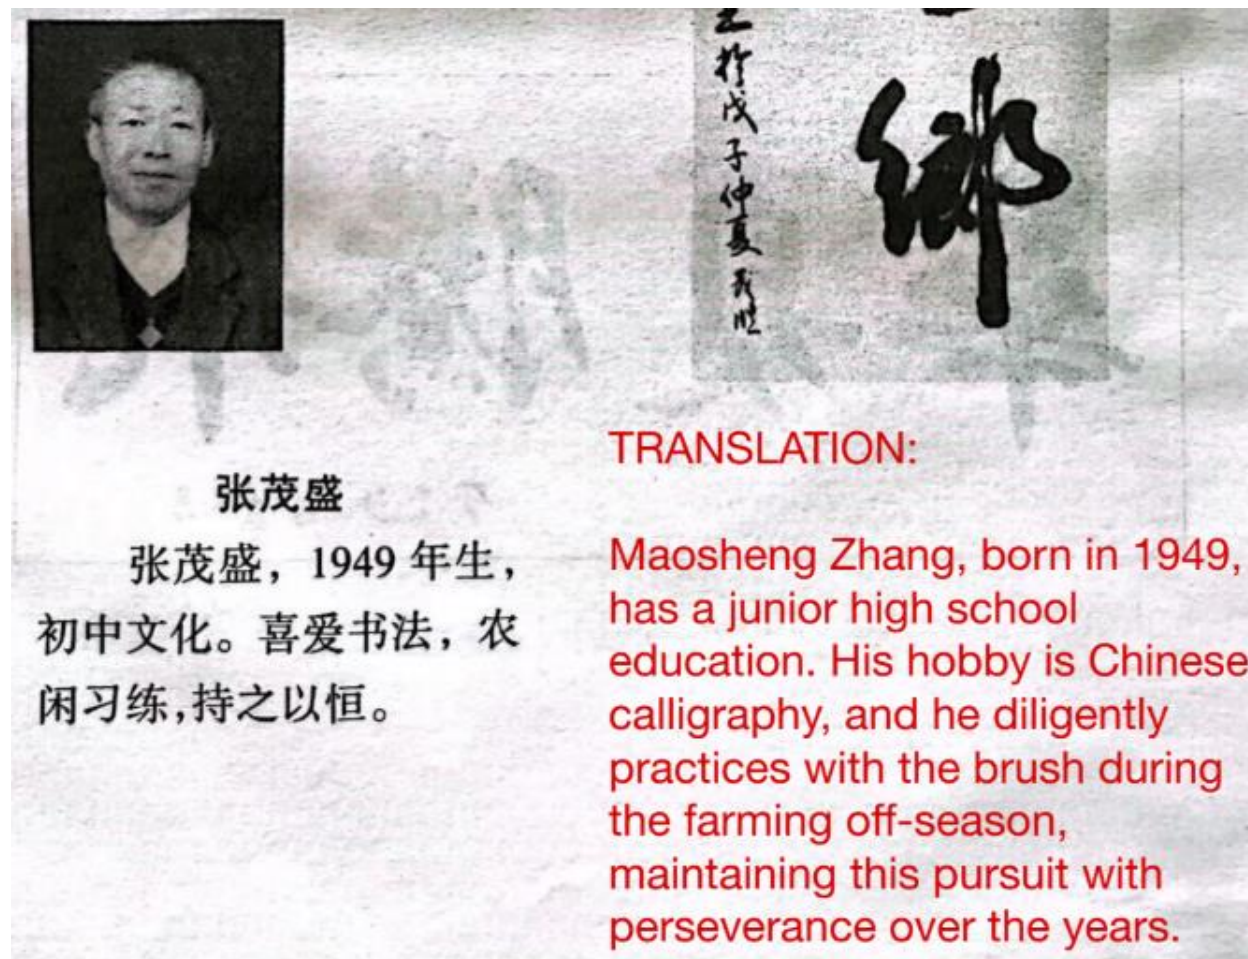 鄉
於戊子仲夏茂盛
张茂盛
张茂盛，1949年生，
初中文化。喜爱书法，农
闲习练,持之以恒。
TRANSLATION:
Maosheng Zhang, born in 1949,
has a junior high school
education. His hobby is Chinese
calligraphy, and he diligently
practices with the brush during
the farming off-season,
maintaining this pursuit with
perseverance over the years.